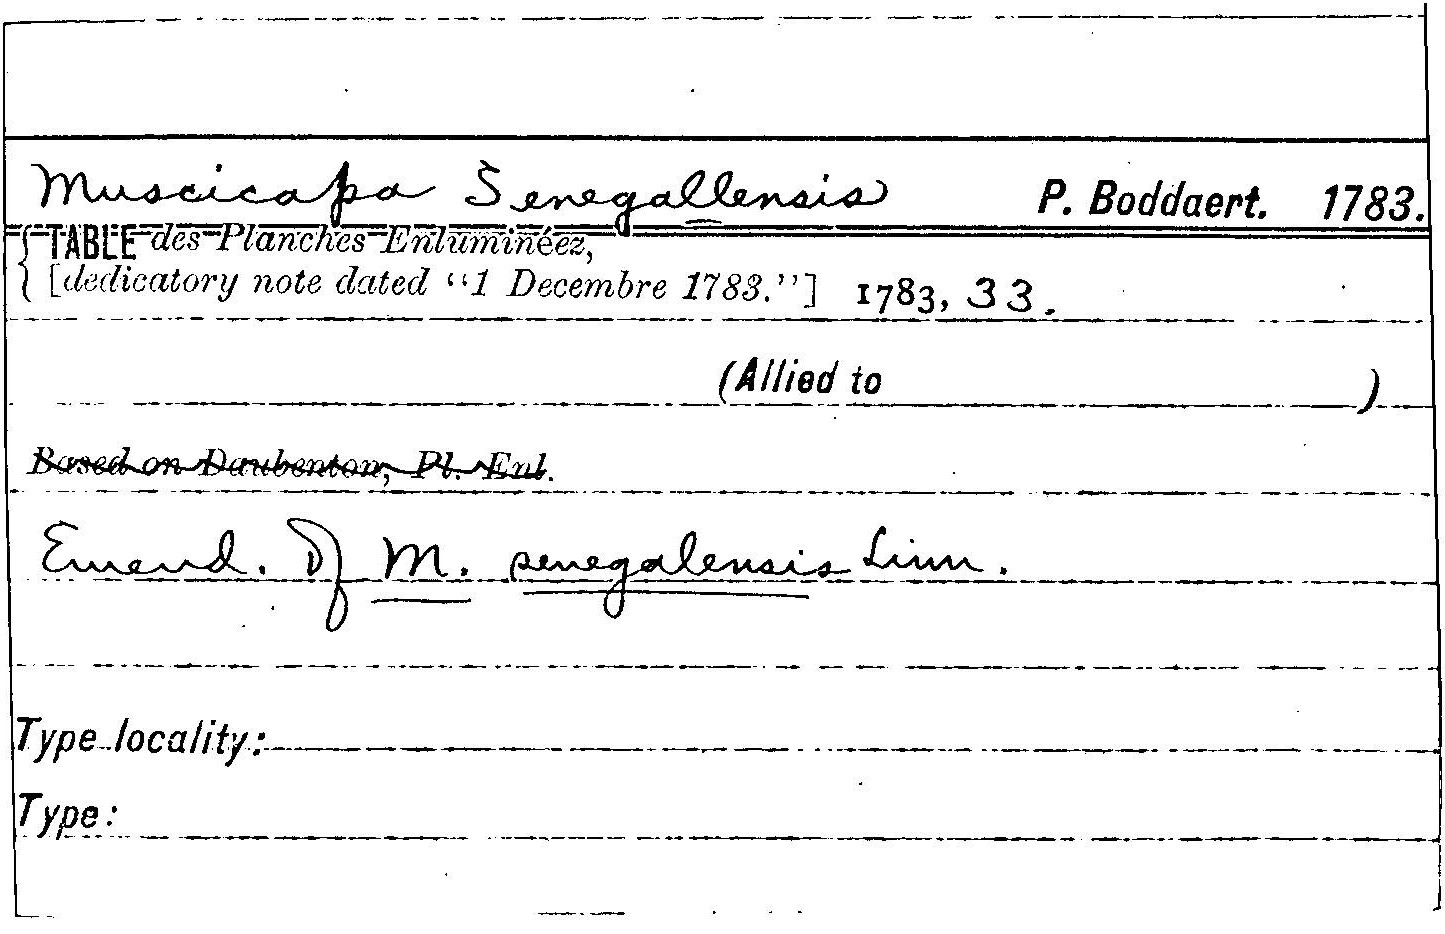 Muscicapa Senegallensis P. Boddaert. 1783.
TABLE des Planches Enluminéez,
[dedicatory note dated "1 Decembre 1783."] 1783, 33.
(Allied to )
Based on Daubenton, Pl. Enl.
Emend. of M. senegalensis Linn.
Type locality:
Type: